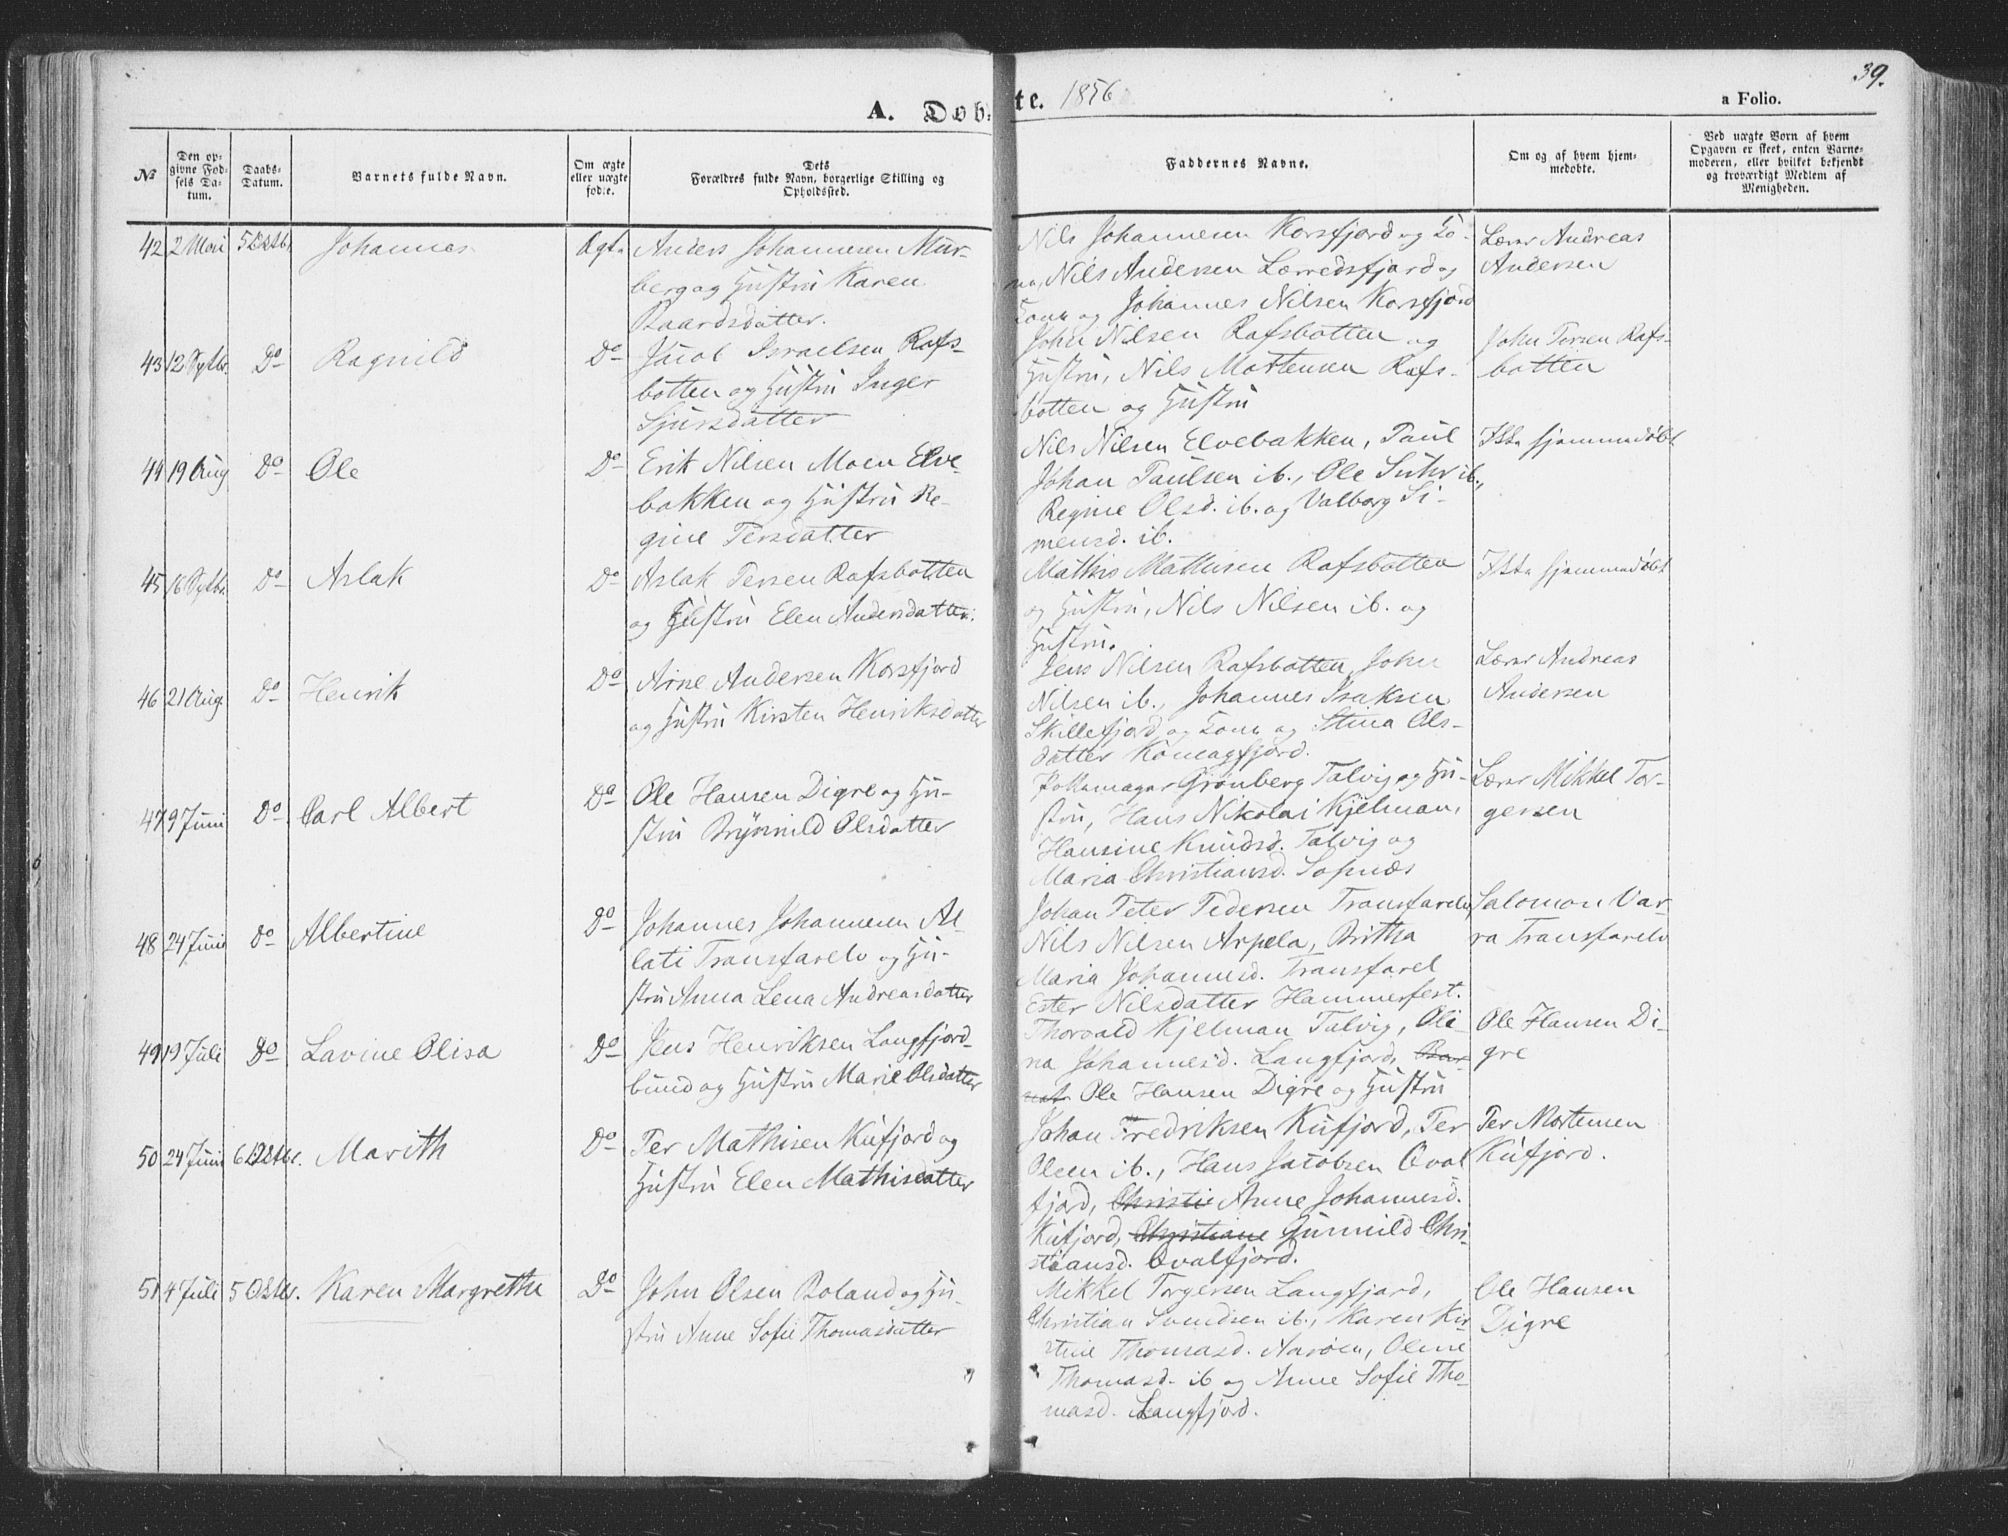 39.
A. Døb=
te. 1856
a Folio.
No
Den op=
givne Fød=
sels Da=
tum.
Daabs=
Datum.
Barnets fulde Navn.
Om ægte
eller uægte
fødte.
Dets
Forældres fulde Navn, borgerlige Stilling og
Opholdssted.
Faddernes Navne.
Om og af hvem hjem=
medøbte.
Ved uægte Born af hvem
Opgaven er skeet, enten Barne=
moderen, eller hvilket bekjendt
og troværdigt Medlem af
Menigheden.
42 2 Mai 5 Octbr. Johannes Ægte
Anders Johannesen Mur-
berg og Hustru Karen
Baardsdatter.
Nils Johannesen Korsfjord og Ko-
na, Nils Andersen Lærredsfjord og
Kone og Johannes Nilsen Korsfjord
Lærer Andreas
Andersen
43 12 Septbr. Do Ragnild Do
Jacob Israelsen Rafs-
botten og Hustru Inger
Sjursdatter
John Nilsen Rafsbotten og
Hustru, Nils Mortensen Rafs-
botten og Hustru
John Persen Rafs-
botten
44 19 Aug Do Ole Do
Erik Nilsen Moen Elve-
bakken og Hustru Re-
gine Persdatter
Nils Nilsen Elvebakken, Paul
Johan Paulsen ib., Ole Suhr ib.,
Regine Olsd. ib. og Valborg Si-
mensd. ib.
Ikke hjemmedøbt
45 16 Septbr. Do Aslak Do
Aslak Persen Rafsbotten
og Hustru Elen Andersdatter.
Mathis Mathisen Rafsbotten
og Hustru, Nils Nilsen ib. og
Hustru.
Ikke hjemmedøbt
46 21 Aug Do Henrik Do
Arne Andersen Korsfjord
og Hustru Kirsten Henriksdatter
Jens Nilsen Rafsbotten, John
Nilsen ib., Johannes Isaksen
Skillefjord og Kone og Stina Ols-
datter Komagfjord.
Lærer Andreas
Andersen
47 9 Juni Do Carl Albert Do
Ole Hansen Digre og Hu-
stru Brynnild Olsdatter
Grønberg Talvig og Hu-
stru, Hans Nikolai Kjelman,
Hansine Knudsd. Talvig og
Maria Christiansd. Sopnæs
Lærer Mikkel Tor-
gersen
48 24 Juni Do Albertine Do
Johannes Johannesen Al-
lati Transfarelv og Hu-
stru Anna Lena Andreasdatter
Johan Peter Pedersen Transfarelv,
Nils Nilsen Arpela, Britha
Maria Johannesd. Transfarel
Ester Nilsdatter Hammerfest.
Salomon Var-
ra Transfarelv
49 19 Juli Do Lavine Olisa Do
Jens Henriksen Langfjord-
bund og Hustru Marie Olsdatter
Thorvald Kjelman Talvig, Oli-
na Johannesd. Langfjord, Bar-
net Ole Hansen Digre og Hustru
Ole Hansen Di-
gre
50 24 Juni 6 Octbr. Marith Do
Per Mathisen Kufjord og
Hustru Elen Mathisdatter
Johan Fredriksen Kufjord, Per
Olsen ib., Hans Jacobsen Qval
fjord, Christi Anne Johannesd.
Kufjord, Christiane Gunnild Chri-
stiansd. Qvalfjord.
Per Mortensen
Kufjord.
51 4 Juli 5 Octbr. Karen Margrethe Do
John Olsen Boland og Hu-
stru Anne Sofie Thomasdatter
Mikkel Torgersen Langfjord,
Christian Svendsen ib., Karen Kir-
stine Thomasd. Aarøen, Oline
Thomasd. ib og Anne Sofie Tho-
masd. Langfjord.
Ole Hansen
Digre